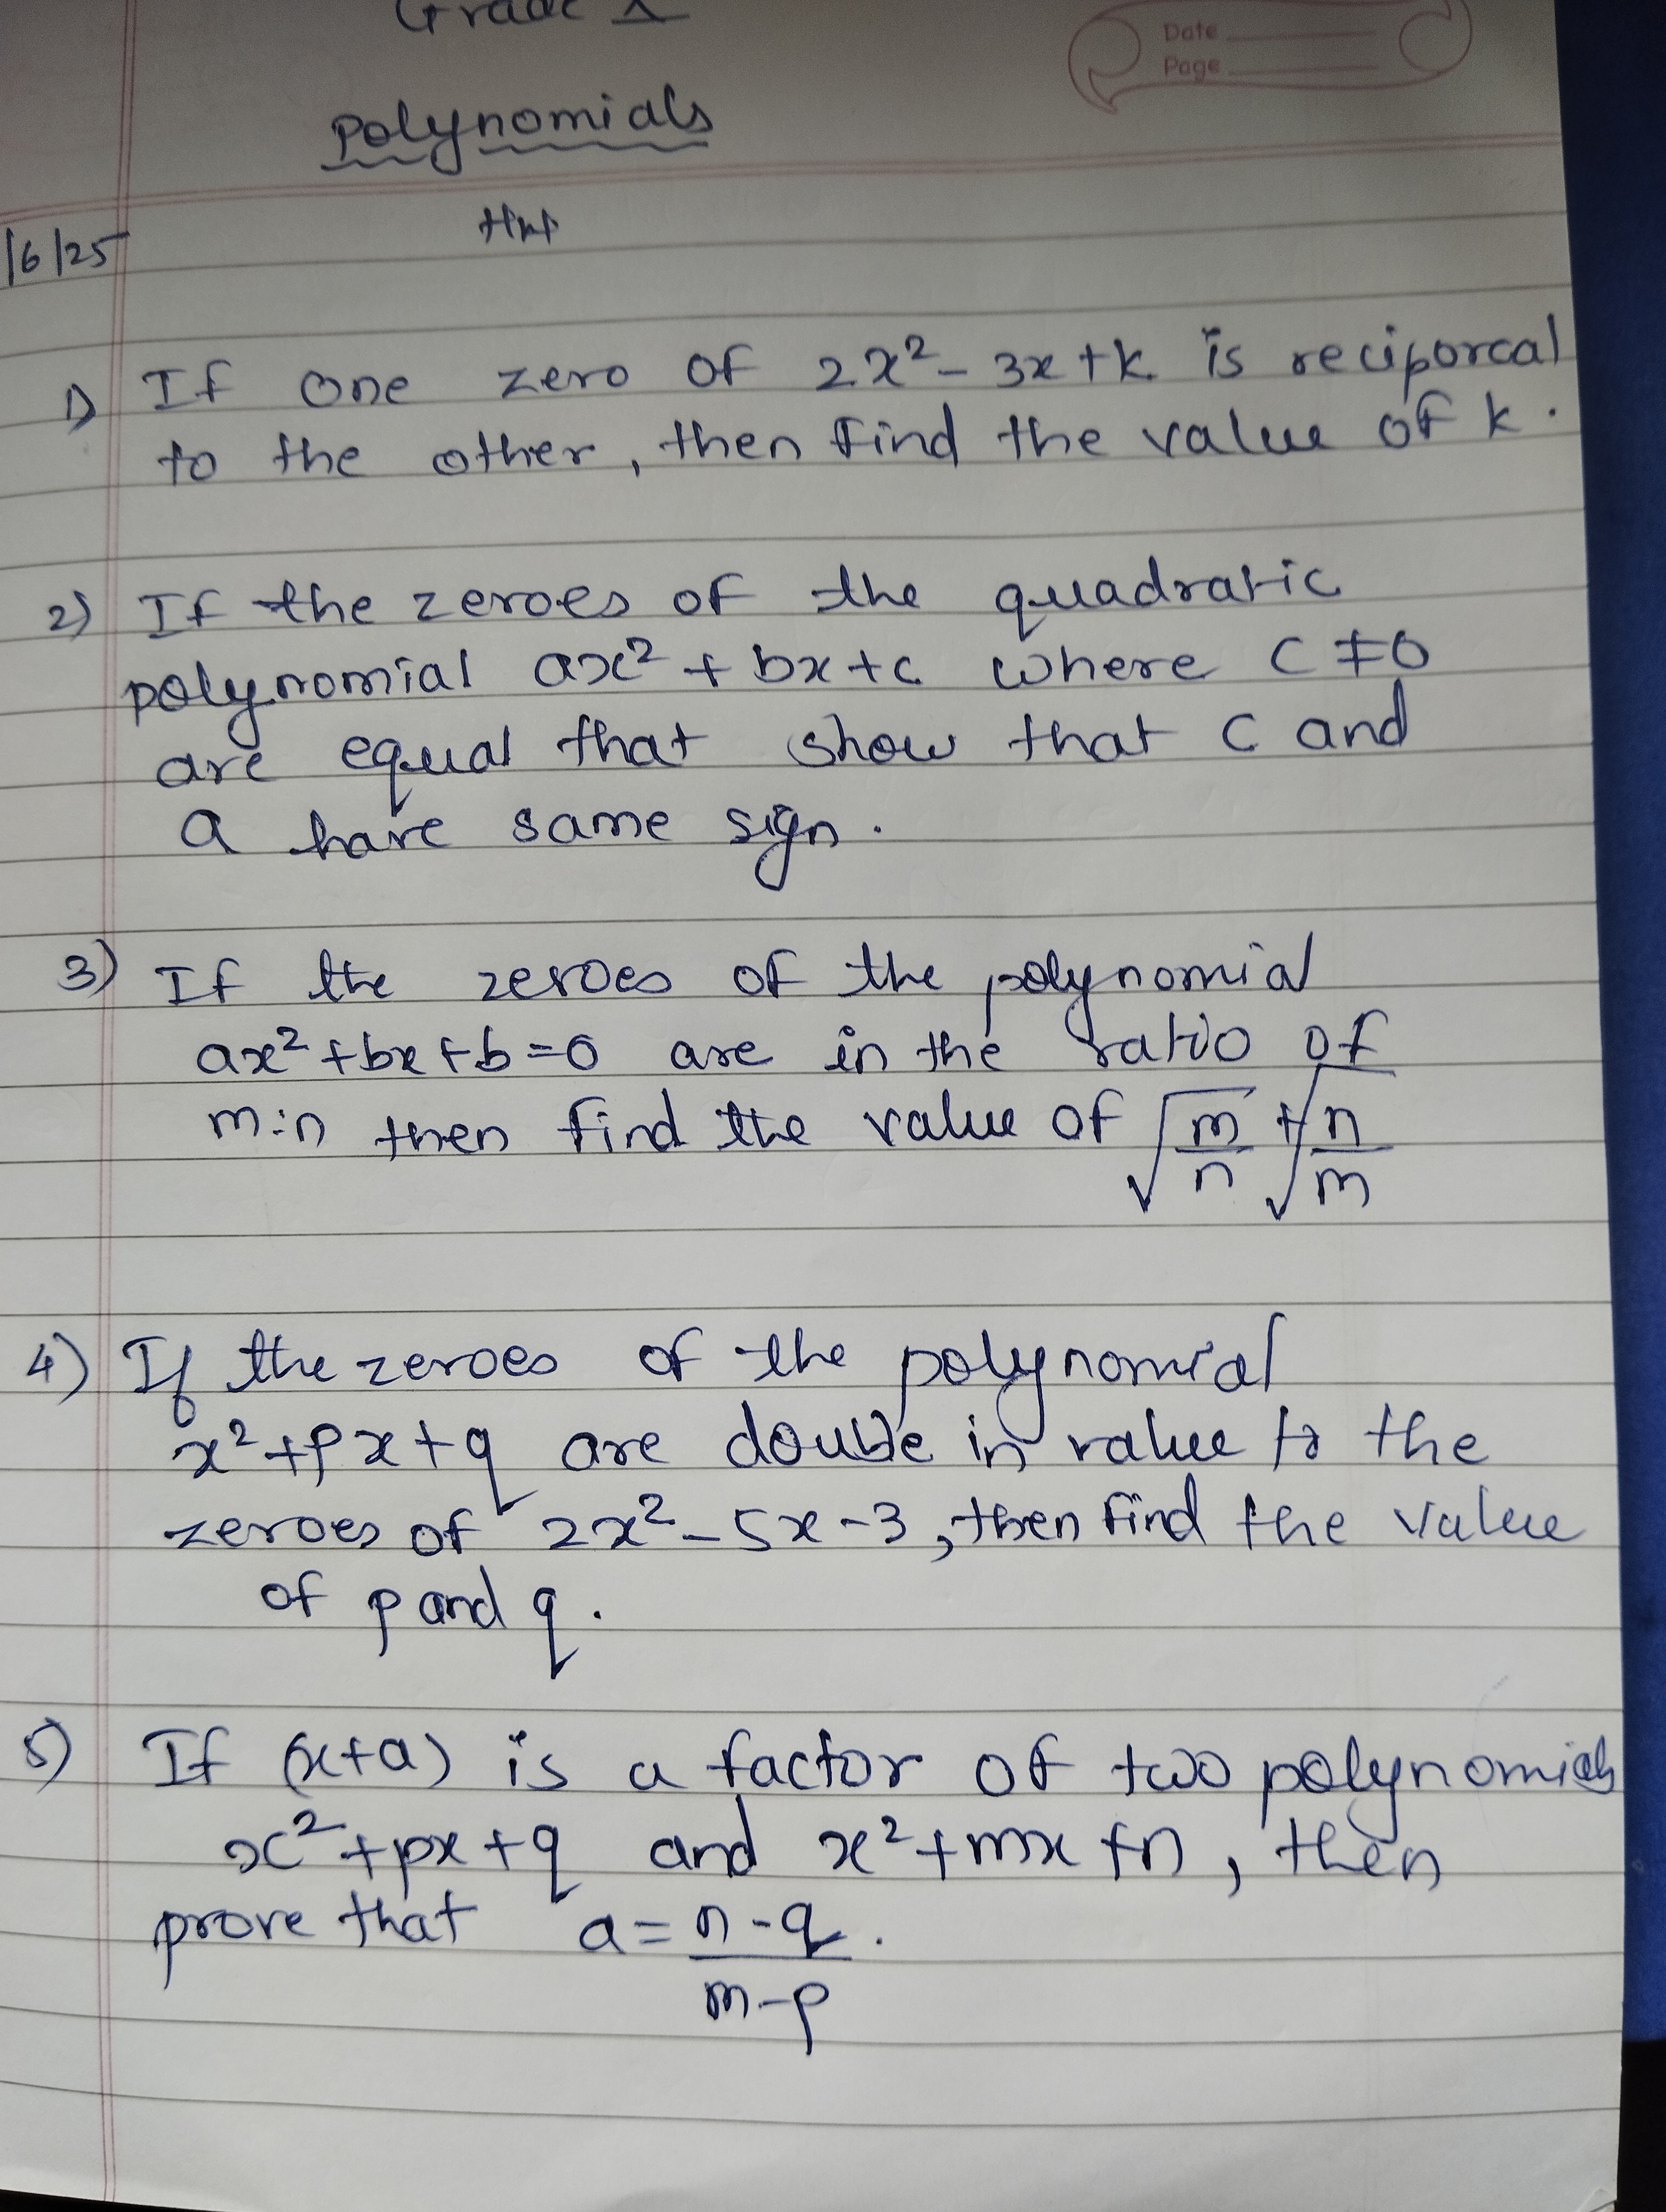 Grade X
Date
Page
Polynomials
/6/25
1) If one zero of 2x² - 3x + k is reciporcal
to the other, then find the value of k.
2) If the zeroes of the quadratic
polynomial ax² + bx + c where c ≠ 0
are equal that show that c and
a have same sign.
3) If the zeroes of the polynomial
ax² + bx + b = 0 are in the ratio of
m:n then find the value of √(m/n) + √(n/m)
4) If the zeroes of the polynomial
x² + px + q are double in value to the
zeroes of 2x² - 5x - 3, then find the value
of p and q.
5) If (x+a) is a factor of two polynomials
x² + px + q and x² + mx + n, then
prove that a = (n-q)/(m-p).